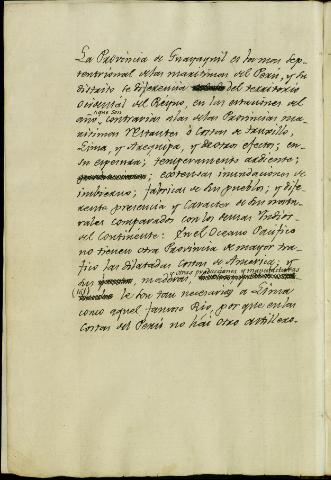 La Provincia de Guayaquil es la mas sep-
tentrional de las maritimas del Perú, y su
distrito se diferencia del territorio
Occidental del Reyno, en las estaciones del
que son
año, contrarias a las de las Provincias ma-
ritimas restantes ò Costas de Truxillo,
Lima, y Arequipa, y de otros efectos; en
su temperamento ardiente;
costosas inundaciones de
imbierno; fabricas de sus pueblos; y dife-
rente presencia y caracter de sus natu-
rales comparados con los demas Indios
del Continente: En el Oceano Pacifico
no tienen otra Provincia de mayor tra-
fico las dilatadas costas de America; y
y otras producciones y manufacturas
sus maderas,
le son tan necesarias a Lima
como aquel famoso Rio, por que en las
Costas del Perú no hái otro astillero.